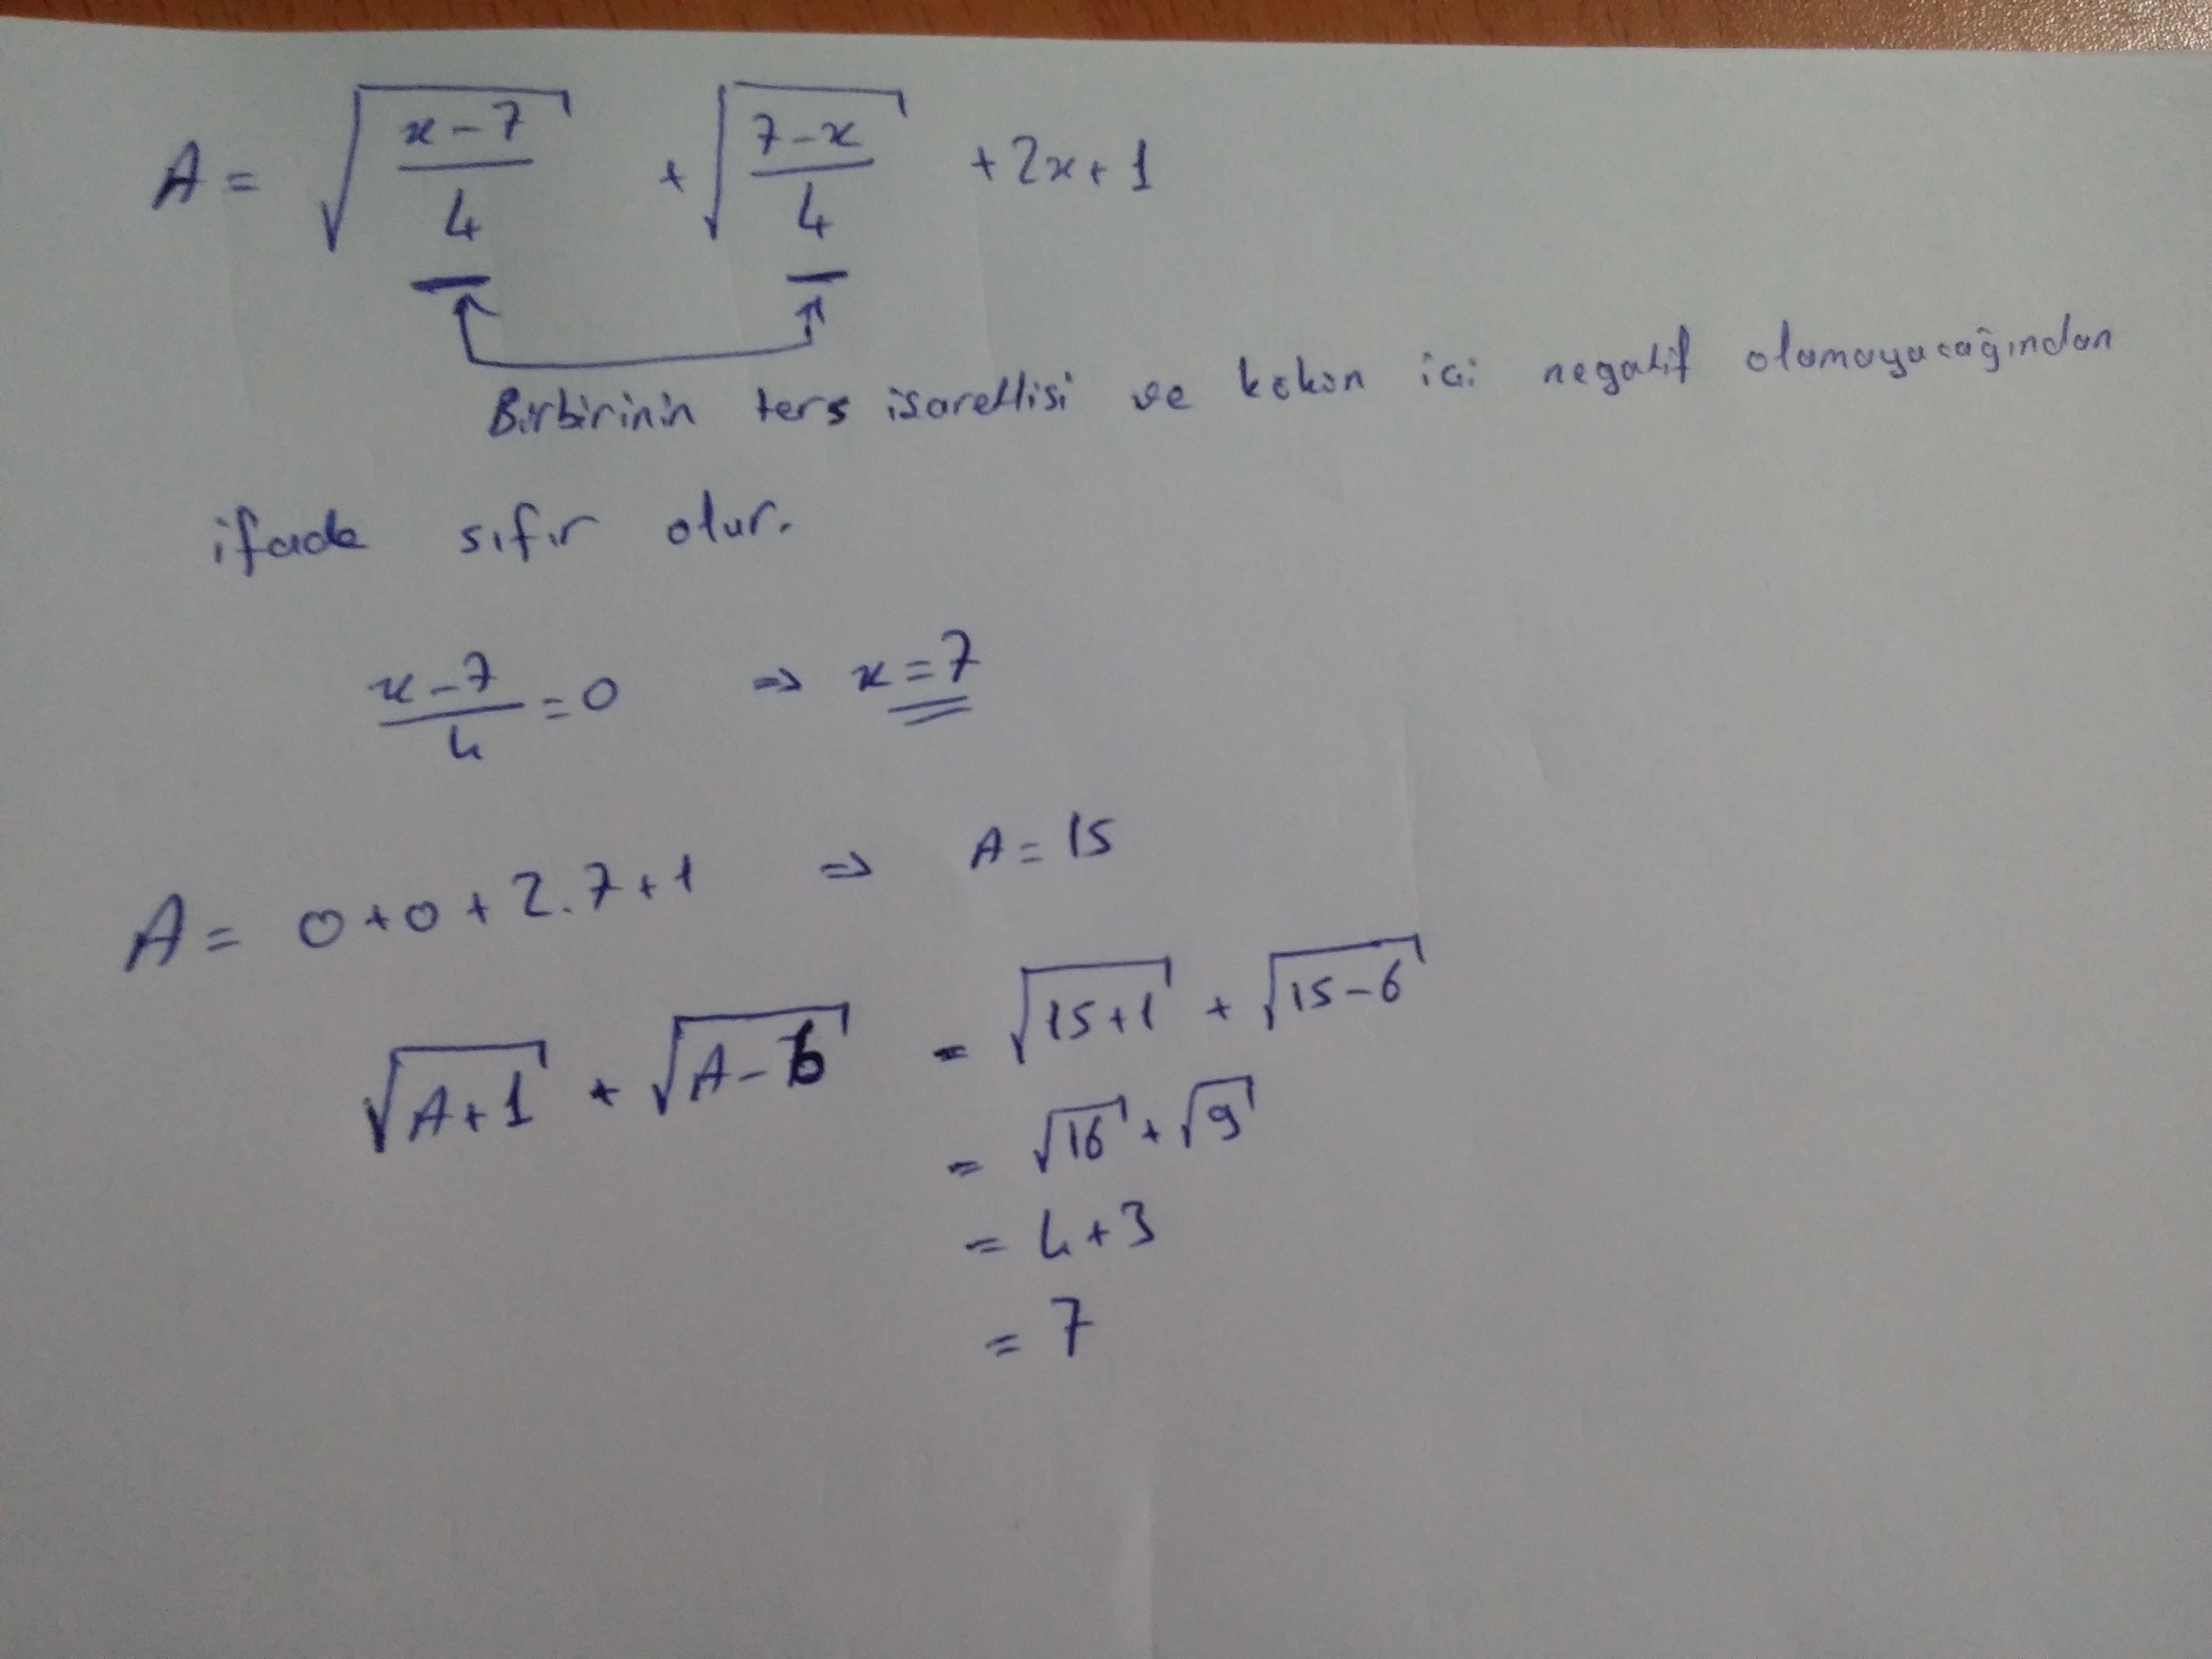 A = √((x-7)/4) + √((7-x)/4) + 2x + 1
Birbirinin ters isaretlisi ve kökün içi negatif olamayacağından
ifade sıfır olur.
(x-7)/4 = 0 ⇒ x = 7
A = 0+0+2.7+1 ⇒ A = 15
√(A+1) + √(A-6) = √(15+1) + √(15-6)
= √16 + √9
= 4+3
= 7